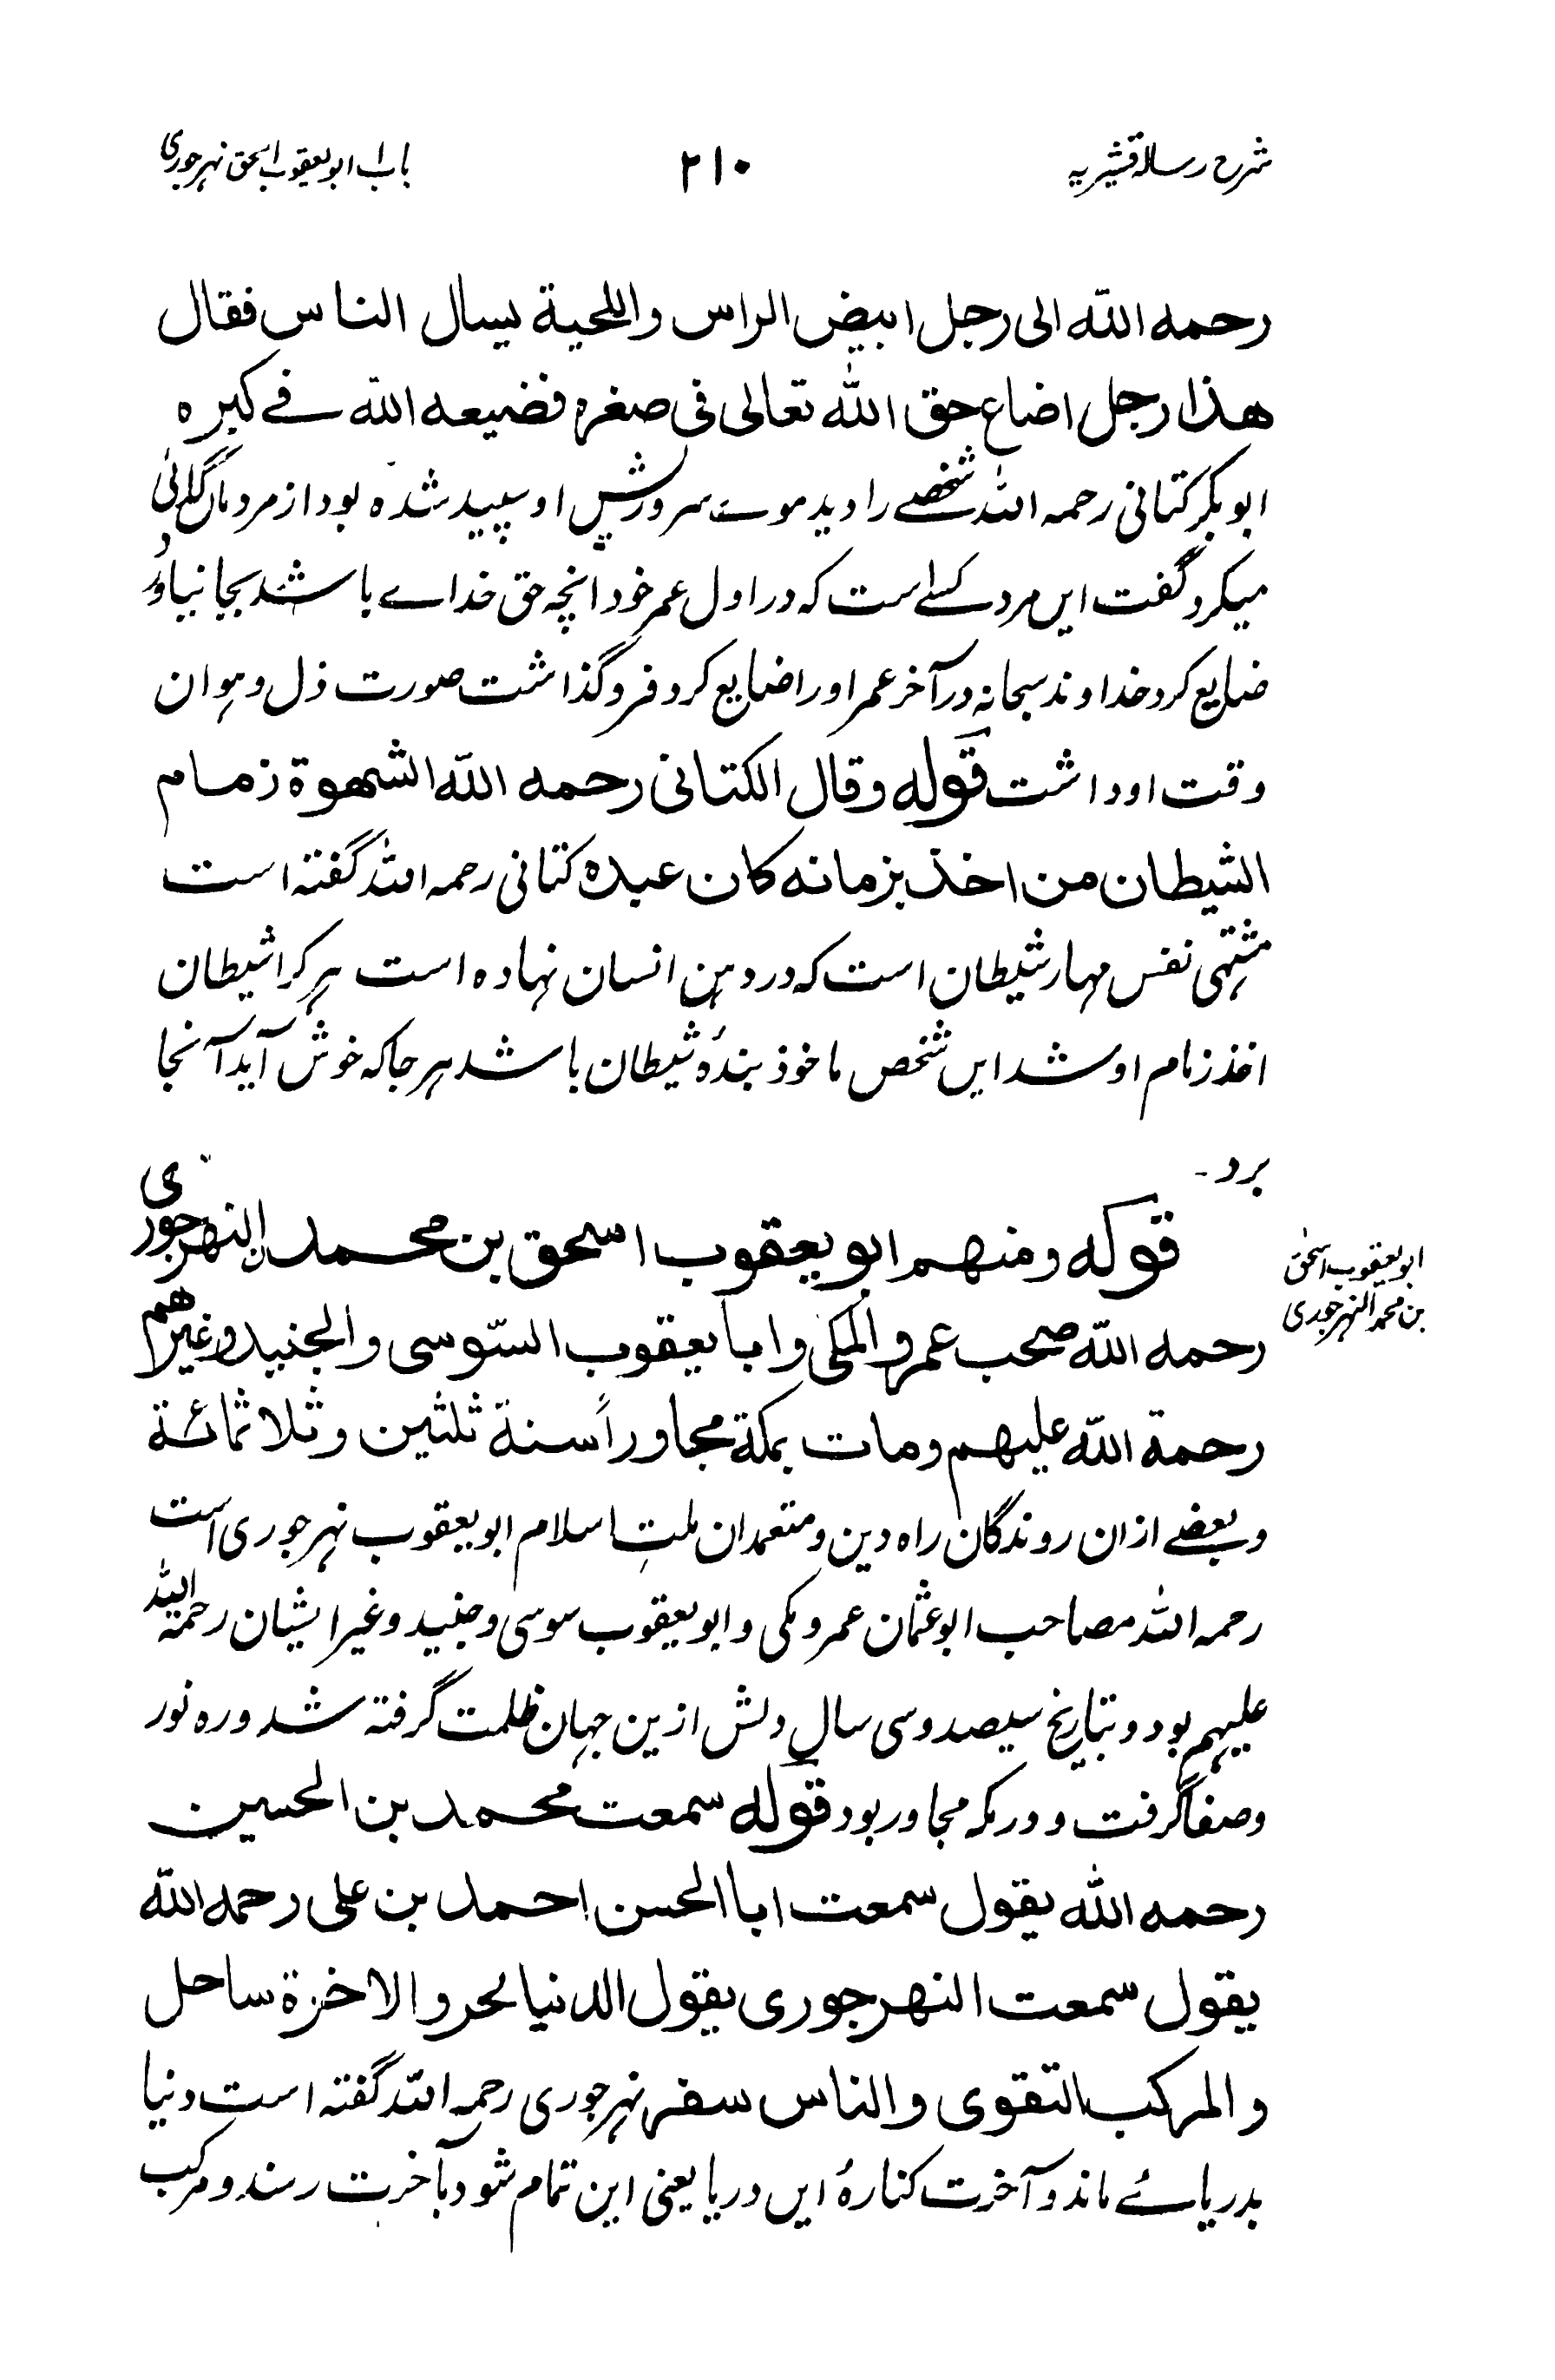 شرح رسالہ قشیریہ
۲۱۰
باب ابو یعقوب اسحق نہرجوری
رحمه الله الى رجل ابيض الراس واللحية يسال الناس فقال
هذا رجل اضاع حق الله تعالى فى صغره فضيعه الله فے كبره
ابو بکر کتانی رحمہ اللہ شخصے را دید موے سر و ریش او سپید شدہ بود از مردمان گدائی
میکرد گفت ایں مرد کسے است کہ در اول عمر خود انچہ حق خداے باشد بجا نیاورد
ضایع کرد خداوند سبحانہ در آخر عمر او را ضایع کرد فرو گذاشت صورت ذل و ہوان
وقت او داشت قوله وقال الكتانى رحمه الله الشهوة زمام
الشيطان من اخذ بزمانه كان عبده کتانی رحمہ اللہ گفتہ است
مشتہی نفس مہار شیطان است کہ در دہن انسان نہادہ است ہر کرا شیطان
اخذ زمام او شد ایں شخص ماخوذ بندۂ شیطان باشد ہر جا کہ خوش آید آنجا
برد۔
قوله ومنهم ابو يعقوب اسحق بن محمدن النهرجورى
رحمه الله صحب عمرو المكى وابا يعقوب السّوسى والجنيد وغيرهم
رحمة الله عليهم ومات بمكة مجاوراً سنة ثلثين وثلاثمائة
ابو یعقوب اسحٰق
بن محمد النہرجوری
و بعضے ازان روندگان راہ دین و متعمدان ملتِ اسلام ابو یعقوب نہرجوری است
رحمہ اللہ مصاحب ابو عثمان عمرو مکی و ابو یعقوب سوسی و جنید و غیر ایشان رحمۃ اللہ
علیہم بود و بتاریخ سیصد و سی سال دلش ازین جہان ظلمت گرفتہ شد و رہ نور
و صفا گرفت و در مکہ مجاور بود قوله سمعت محمد بن الحسين
رحمه الله يقول سمعت ابا الحسن احمد بن على رحمه الله
يقول سمعت النهرجورى يقول الدنيا بحر والاخرة ساحل
والمركب التقوى والناس سفر نہرجوری رحمہ اللہ گفتہ است دنیا
بدریاے ماند و آخرت کنارۂ ایں دریا یعنی این تمام شود بآخرت رسند و مرکب